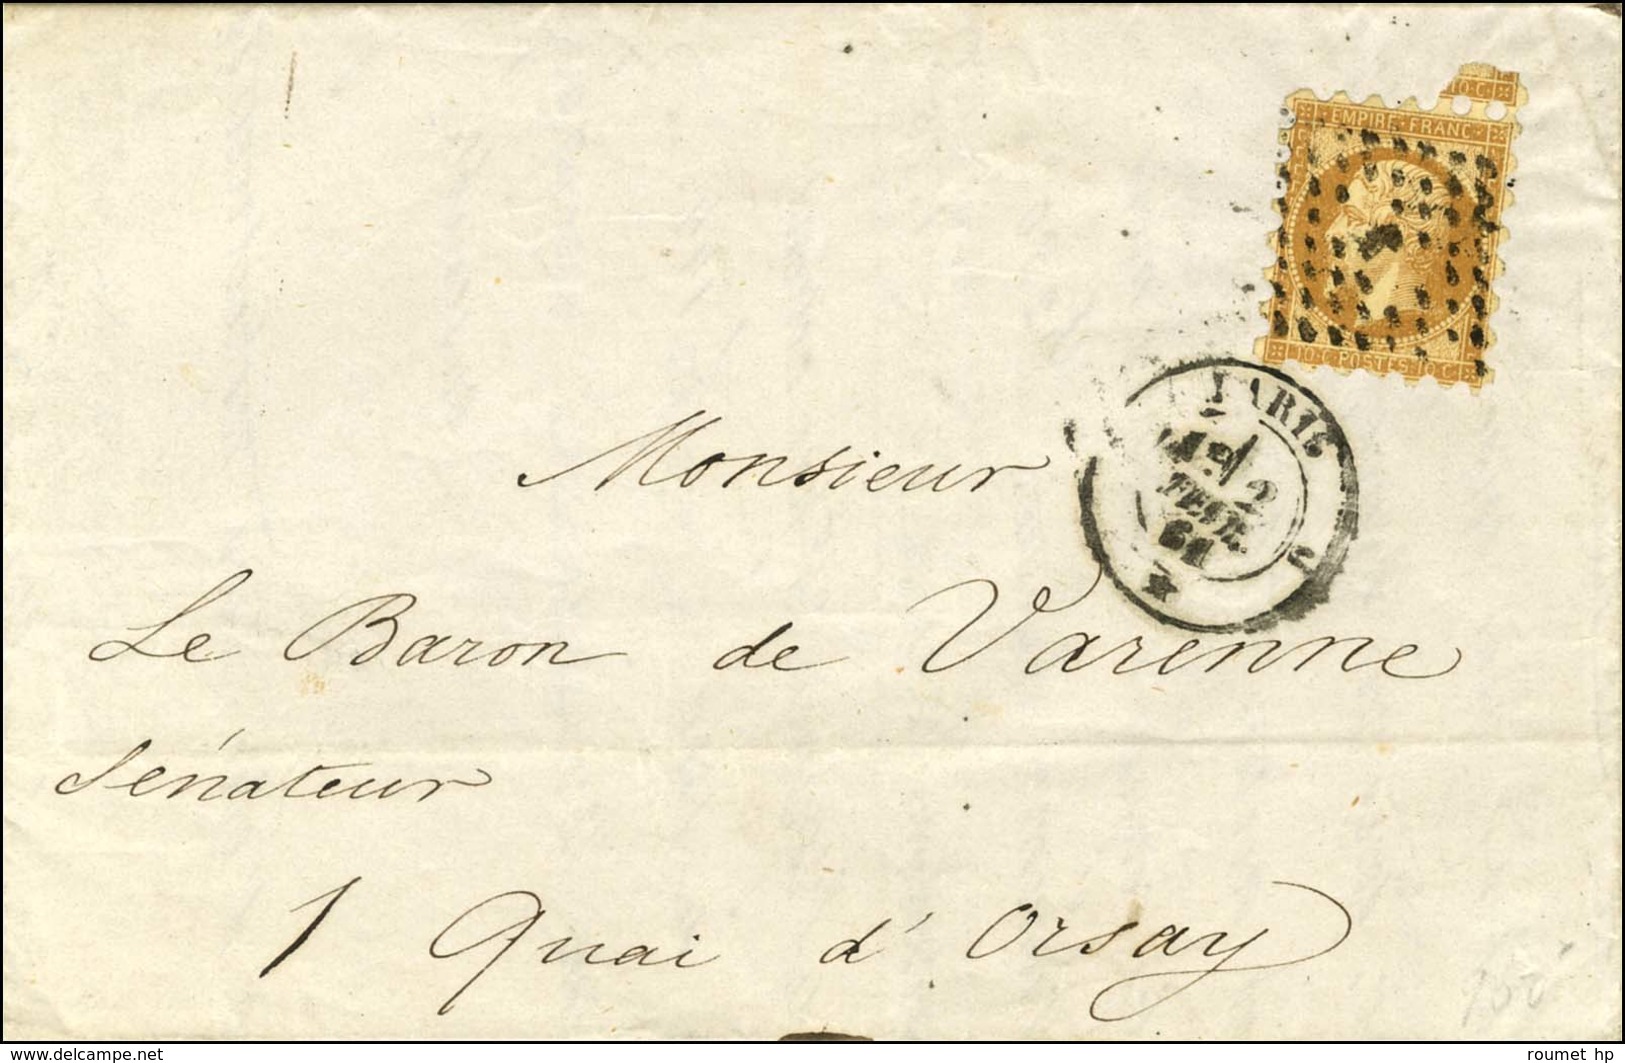 10.C.
EMPIRE FRANC
10.C. POSTES 10.C.
PARIS
2
FEVR.
61
Monsieur
Le Baron de Varenne
Sénateur
1 Quai d'Orsay
www.delcampe.net
roumet hp